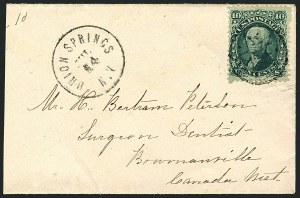 1d
UNION SPRINGS
N.Y.
10 U.S. POSTAGE 10
Mr. H. Bertram Peterson
Surgeon Dentist
Bowmanville
Canada West.